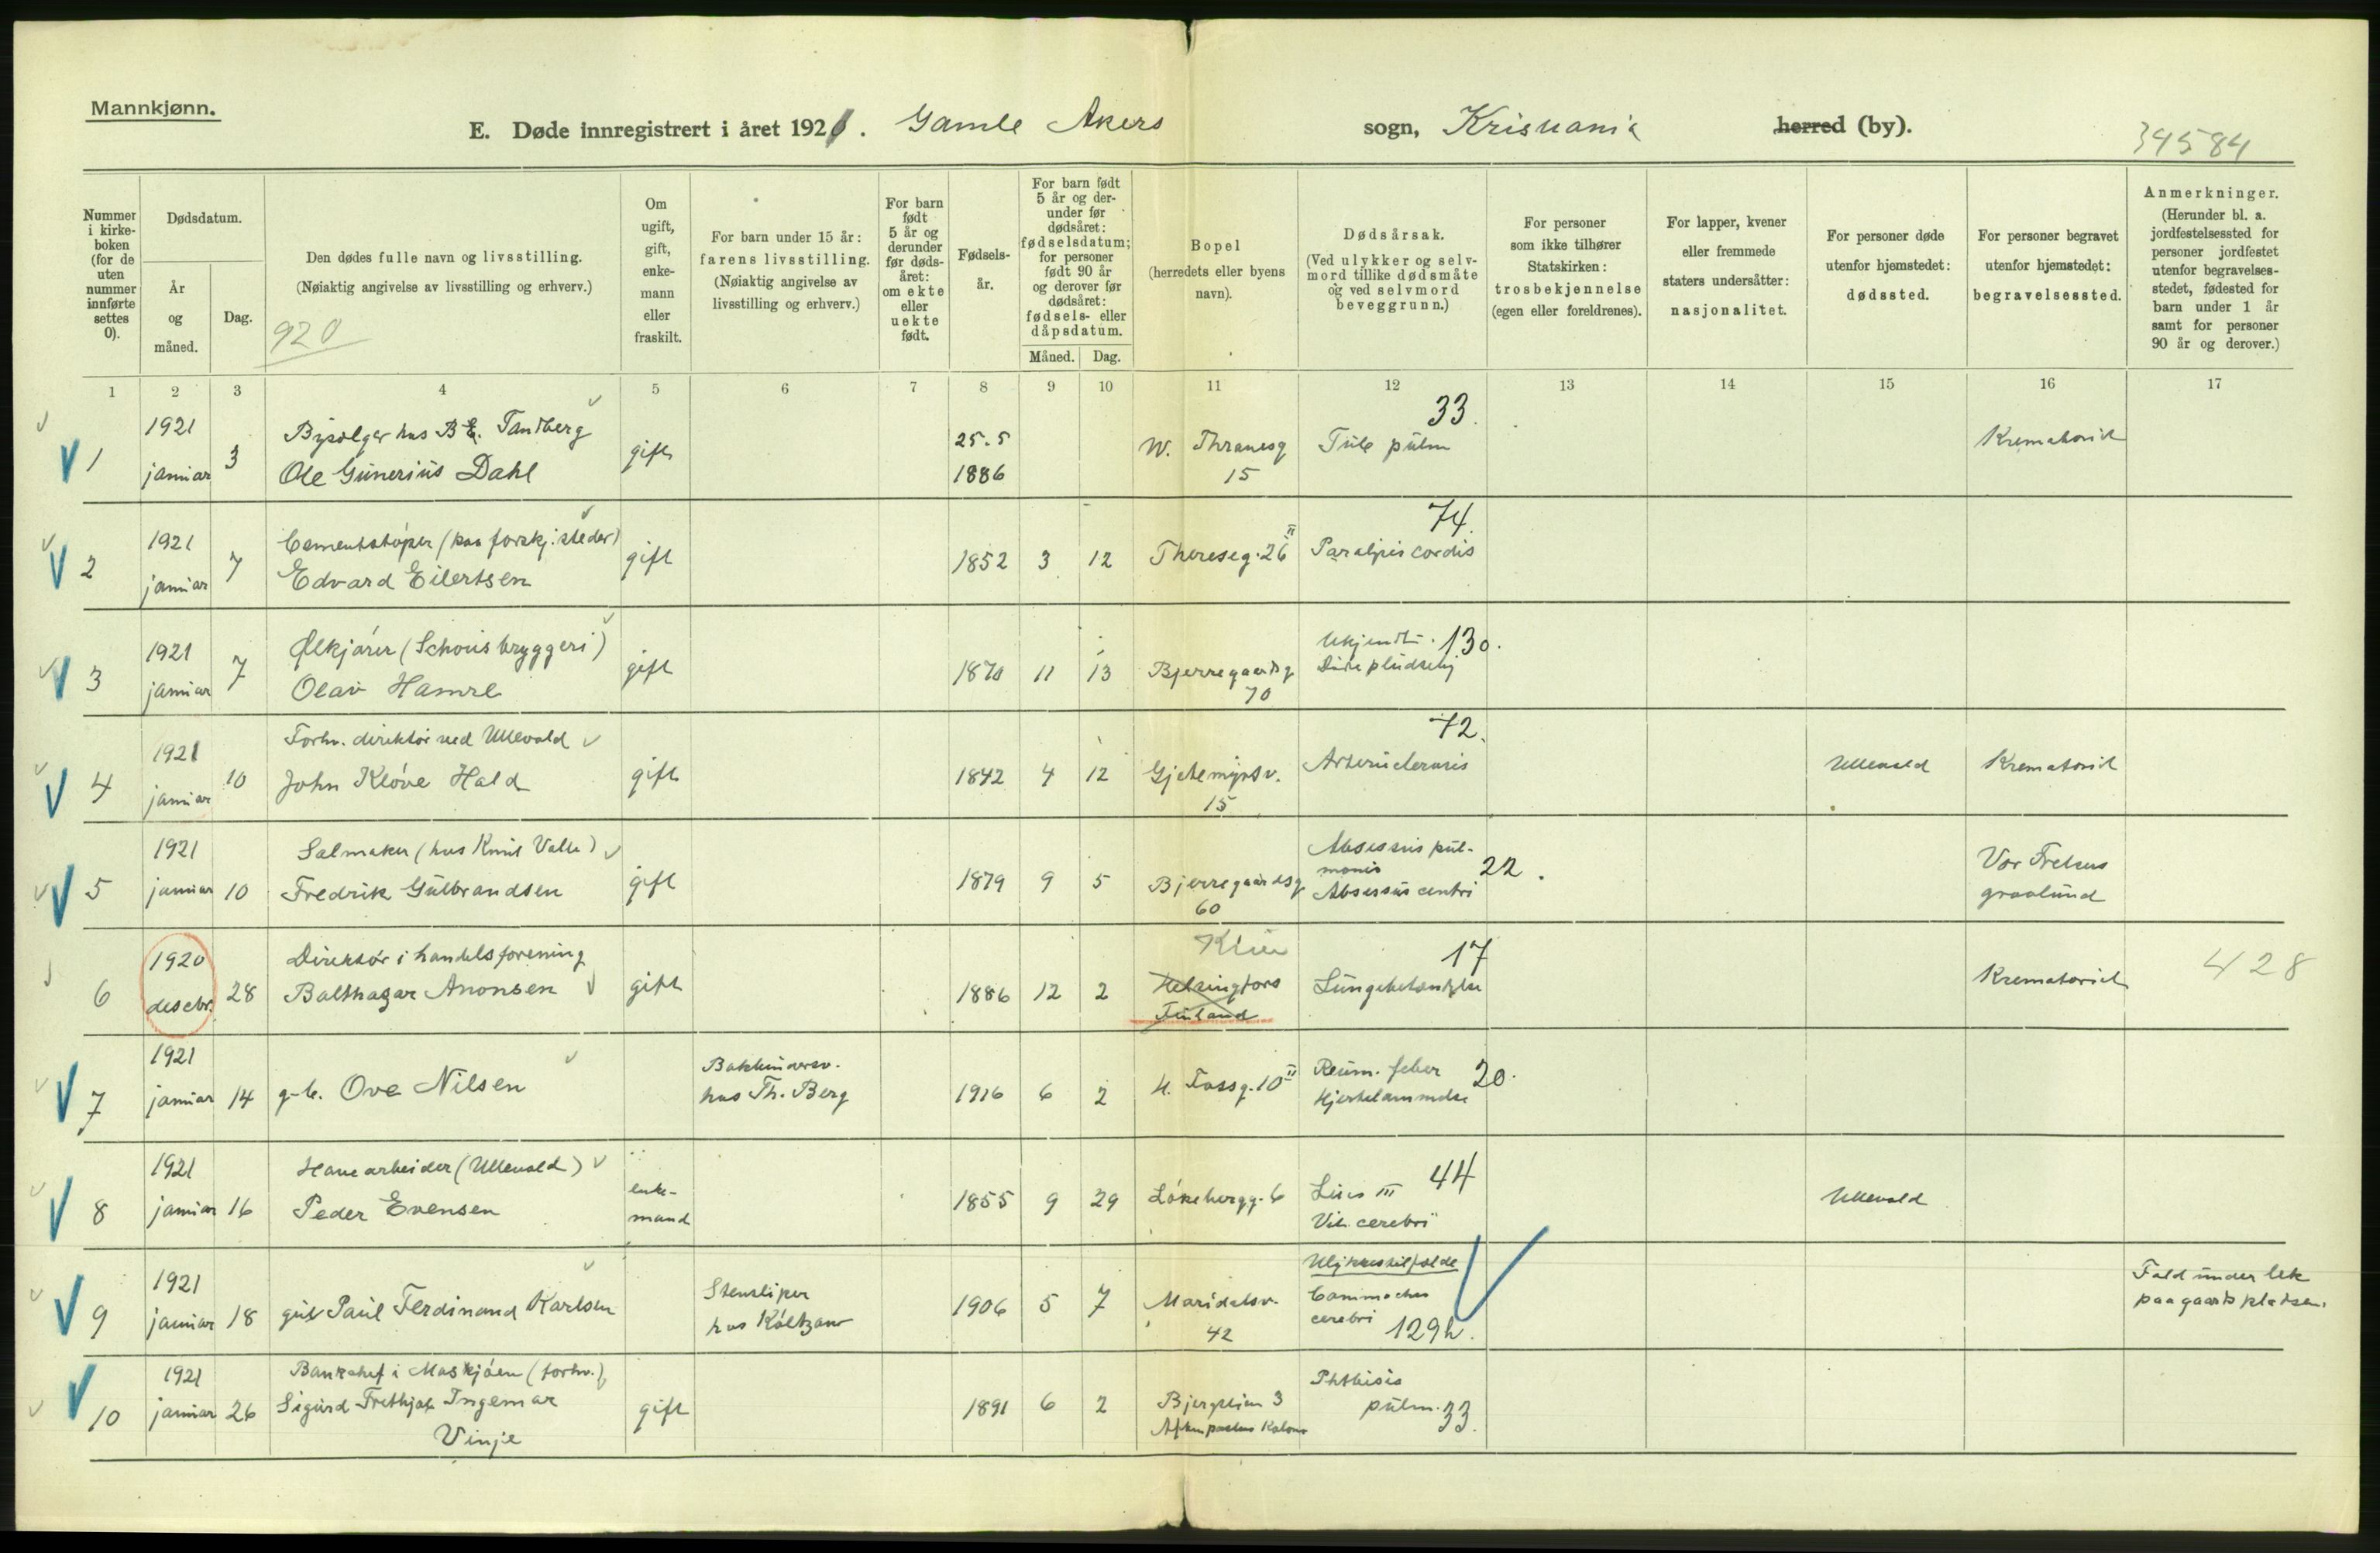 Mannkjønn.
E. Døde innregistrert i året 1921. Gamle Akers sogn, Kristiania herred (by).
34584
Nummer i kirke-boken (for de uten nummer innførte settes 0).
Dødsdatum.
År og måned.
Dag.
Den dødes fulle navn og livsstilling.
(Nøiaktig angivelse av livsstilling og erhverv.)
920
Om ugift, gift, enke-mann eller fraskilt.
For barn under 15 år:
farens livsstilling.
(Nøiaktig angivelse av livsstilling og erhverv.)
For barn født 5 år og derunder før døds-året: om ekte eller uekte født.
Fødsels-år.
For barn født 5 år og der-under før dødsåret: fødselsdatum; for personer født 90 år og derover før dødsåret: fødsels- eller dåpsdatum.
Måned. Dag.
Bopel
(herredets eller byens navn).
Dødsårsak.
(Ved ulykker og selv-mord tillike dødsmåte og ved selvmord beveggrunn.)
For personer som ikke tilhører Statskirken: trosbekjennelse (egen eller foreldrenes).
For lapper, kvener eller fremmede staters undersåtter: nasjonalitet.
For personer døde utenfor hjemstedet: dødssted.
For personer begravet utenfor hjemstedet: begravelsessted.
Anmerkninger.
(Herunder bl. a. jordfestelsessted for personer jordfestet utenfor begravelses-stedet, fødested for barn under 1 år samt for personer 90 år og derover.)
1 2 3 4 5 6 7 8 9 10 11 12 13 14 15 16 17
1 1921 januar 3 hos B.E. Tandberg
Ole Gunerius Dahl gift 25.5 1886 W. Thranesg 15 Tub pulm 33. Krematoriet
2 1921 januar 7 Cementstøper (paa forskj. steder)
Edvard Eilertsen gift 1852 3 12 Thereseg. 26 II Paralysis cordis 74.
3 1921 januar 7 Ølkjører (Schous bryggeri)
Olav Hamre gift 1870 11 13 Bjerregaardsg 70 Ukjendt. Døde pludselig 130.
4 1921 januar 10 Forhv. direktør ved Ullevold
John Kløve Hald gift 1842 4 12 Gjetemyrsv. 15 72. Ullevold Krematoriet
5 1921 januar 10 Salmaker (hos Knut Valle)
Fredrik Gulbrandsen gift 1879 9 5 Bjerregaardsg 60 Absessus pul-
monis
Absessus 22. Vor Frelsers
gravlund
6 1920 desebr. 28 Direktør i handelsforening
Balthazar Anonsen gift 1886 12 2 Helsingfors
Finland Lungebetændelse 17 Krematoriet 428
7 1921 januar 14 g-b. Ove Nilsen
hos Th. Berg 1916 6 2 U. Fossg. 10 II Reum. feber
20.
8 1921 januar 16 Havearbeider (Ullevold)
Peder Evensen enke-
mand 1855 9 29 Løkebergg. 6 Lues III
Vit. cerebri 44 Ullevold
9 1921 januar 18 gut Paul Ferdinand Karlsen Stensliper
hos 1906 5 7 Maridalsv. 42 Ulykkestilfælde
Commotio
cerebri 129h. Fald under lek
paa gaardspladsen.
10 1921 januar 26 Bankchef i (forhv.)
Sigurd Frithjof Ingemar
Vinje gift 1891 6 2 3
Phthisis
pulm. 33.